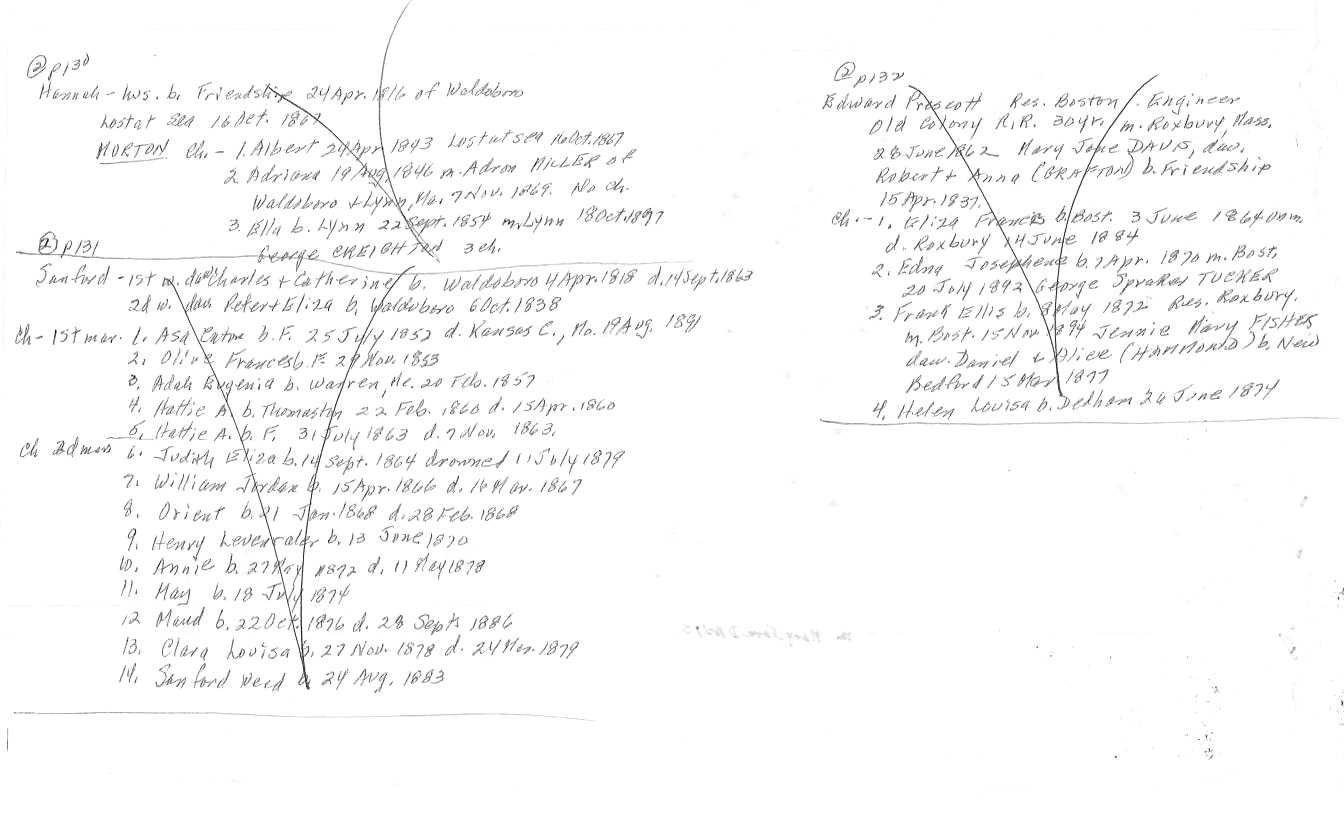 ② p130
Hannah - hus. b. Friendship 24 Apr. 1816 of Waldoboro
Lost at Sea 16 Oct. 1867
MORTON Ch. - 1. Albert 24 Apr 1843 Lost at sea 16 Oct. 1867
2 Adriana 19 Aug 1846 m. Adron MILLER of
Waldoboro + Lynn, Ma. 7 Nov. 1869. No ch.
3. Ella b. Lynn 22 Sept. 1854 m. Lynn 18 Oct. 1897
George CREIGHTON 3 ch.
② p131
Sanford - 1st m. dau Charles + Catherine b. Waldoboro 4 Apr. 1818 d. 14 Sept. 1863
2d w. dau Peter + Eliza b. Waldoboro 6 Oct. 1838
Ch - 1st mar. 1. Asa Eaton b. F. 25 July 1852 d. Kansas C., Mo. 19 Aug. 1891
2. Olive Frances b. F. 29 Nov. 1853
3. Adah Eugenia b. Warren, Me. 20 Feb. 1857
4. Hattie A. b. Thomaston 22 Feb. 1860 d. 15 Apr. 1860
5. Hattie A. b. F. 31 July 1863 d. 7 Nov. 1863.
Ch 2d mar 6. Judith Eliza b. 14 Sept. 1864 drowned 11 July 1879
7. William Jordan b. 15 Apr. 1866 d. 18 Mar. 1867
8. Orient b. 21 Jan. 1868 d. 28 Feb. 1868
9. Henry Levensaler b. 13 June 1870
10. Annie b. 27 May 1872 d. 11 May 1878
11. May b. 18 July 1874
12 Maud b. 22 Oct. 1876 d. 28 Sept 1886
13. Clara Louisa b. 27 Nov. 1878 d. 24 Mar. 1879
14. Sanford Weed b. 24 Aug. 1883
② p132
Edward Prescott Res. Boston. Engineer
Old Colony R.R. 30 yr. m. Roxbury, Mass.
28 June 1862 Mary Jane DAVIS, dau.
Robert + Anna (GRAFTON) b. Friendship
15 Apr. 1837.
Ch. - 1. Eliza Francis b. Bost. 3 June 1864 unm.
d. Roxbury 14 June 1884
2. Edna Josephene b. 7 Apr. 1870 m. Bost.
20 July 1892 George Spraker TUCKER
3. Frank Ellis b. 8 May 1872 Res. Roxbury.
m. Bost. 15 Nov 1894 Jennie Mary FISHER
dau. Daniel + Alice (HAMMOND) b. New
Bedford 15 Mar 1877
4. Helen Louisa b. Dedham 26 June 1874